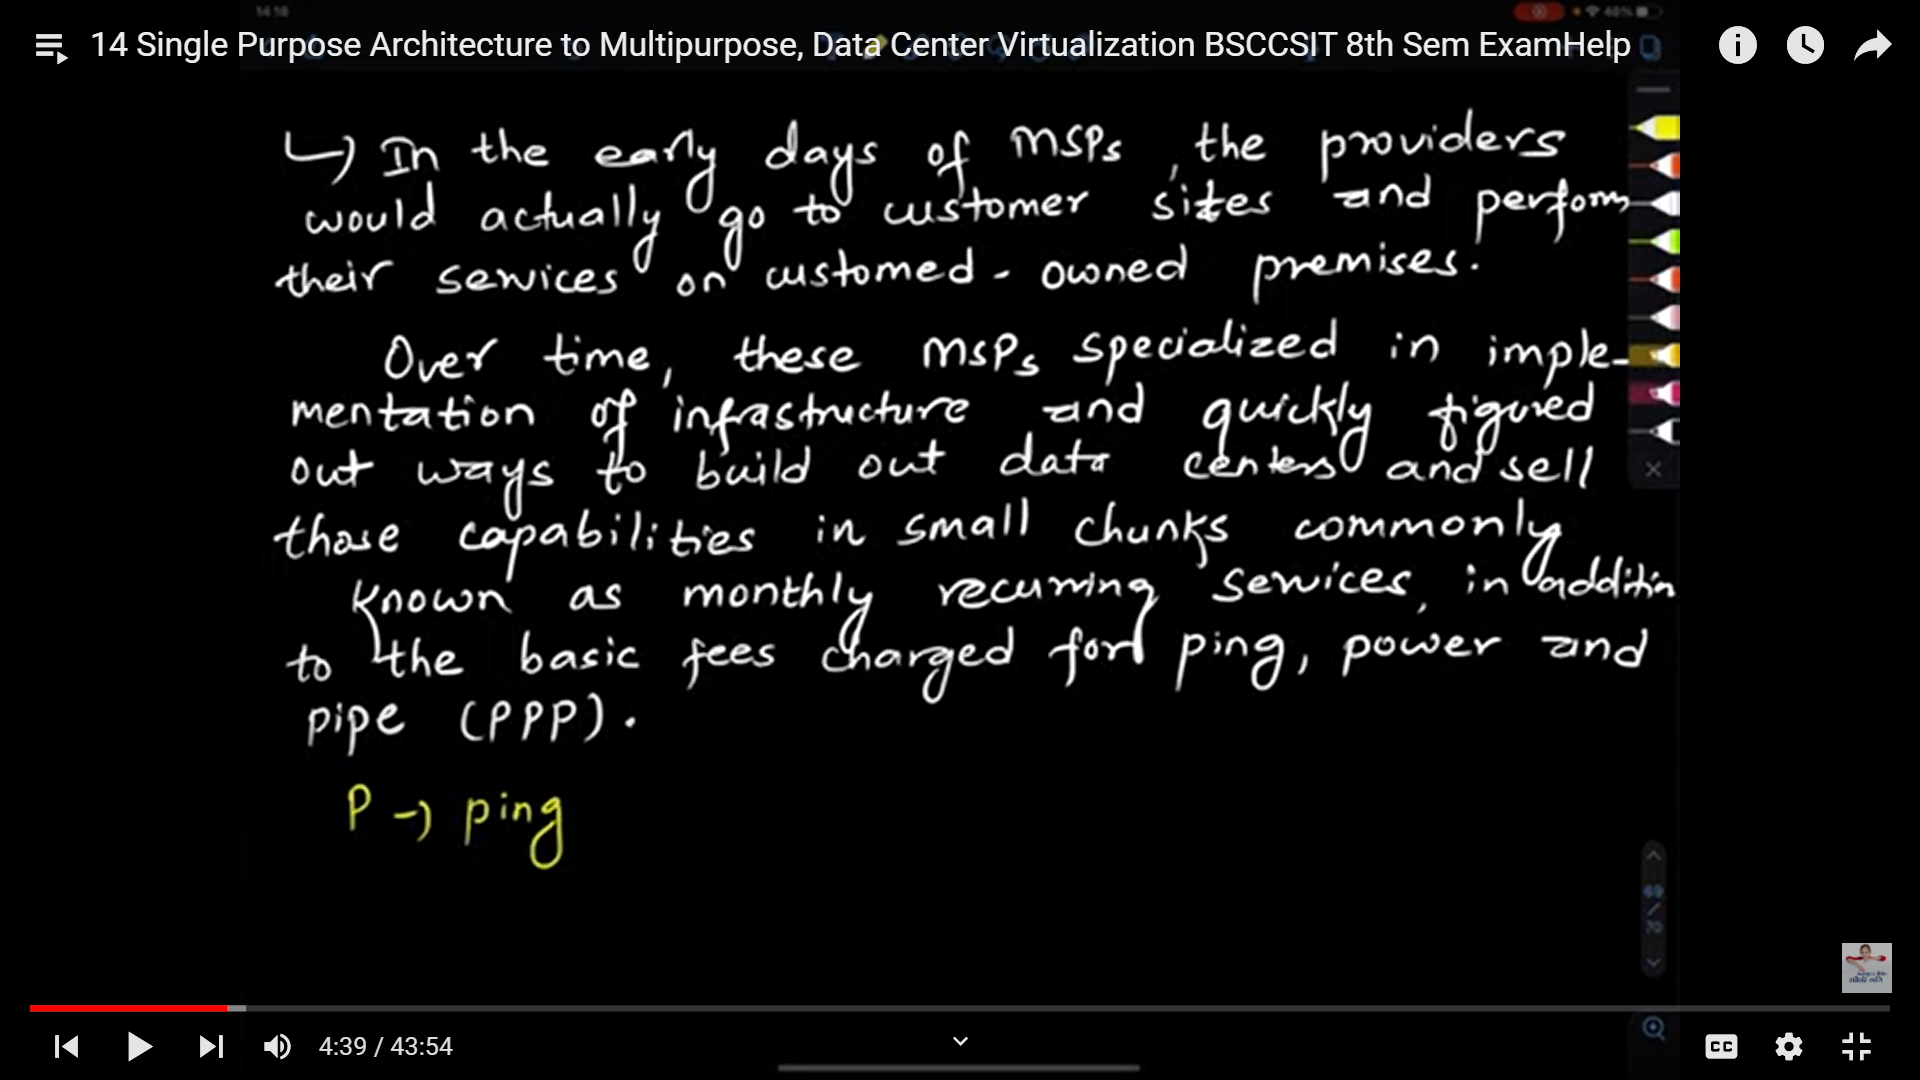 14 58
48%
14 Single Purpose Architecture to Multipurpose, Data Center Virtualization BSCCSIT 8th Sem ExamHelp
In the early days of MSPs, the providers
would actually go to customer sites and perform
their services on customed-owned premises.
Over time, these MSPs specialized in imple-
mentation of infrastructure and quickly figured
out ways to build out data centers and sell
those capabilities in small chunks commonly
known as monthly recurring services, in addition
to the basic fees charged for ping, power and
pipe (PPP).
P → ping
69
/
70
4:39 / 43:54
CC